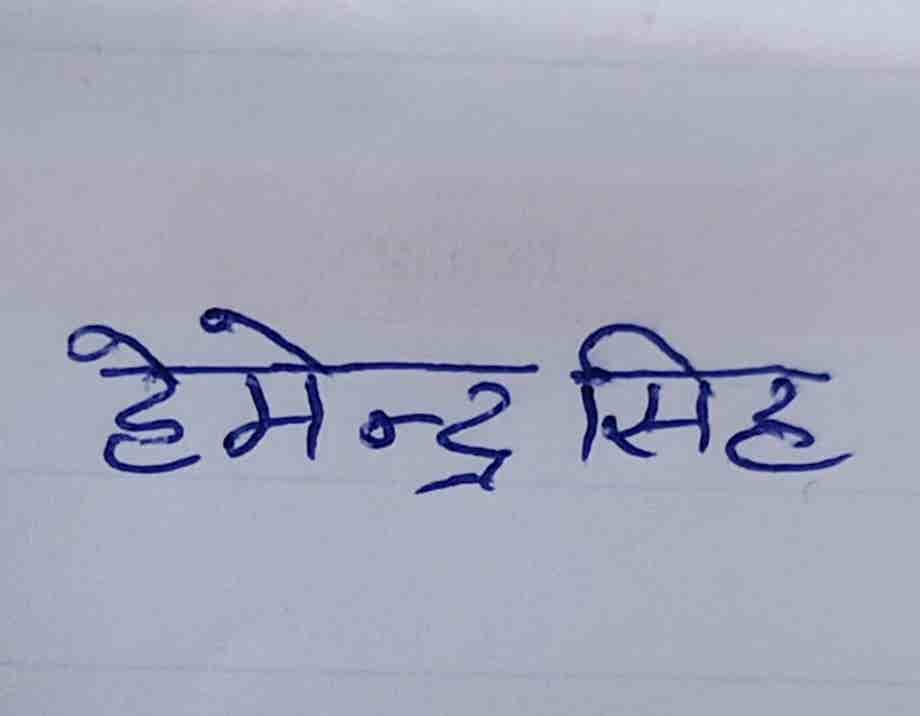 हेमेन्द्र सिह